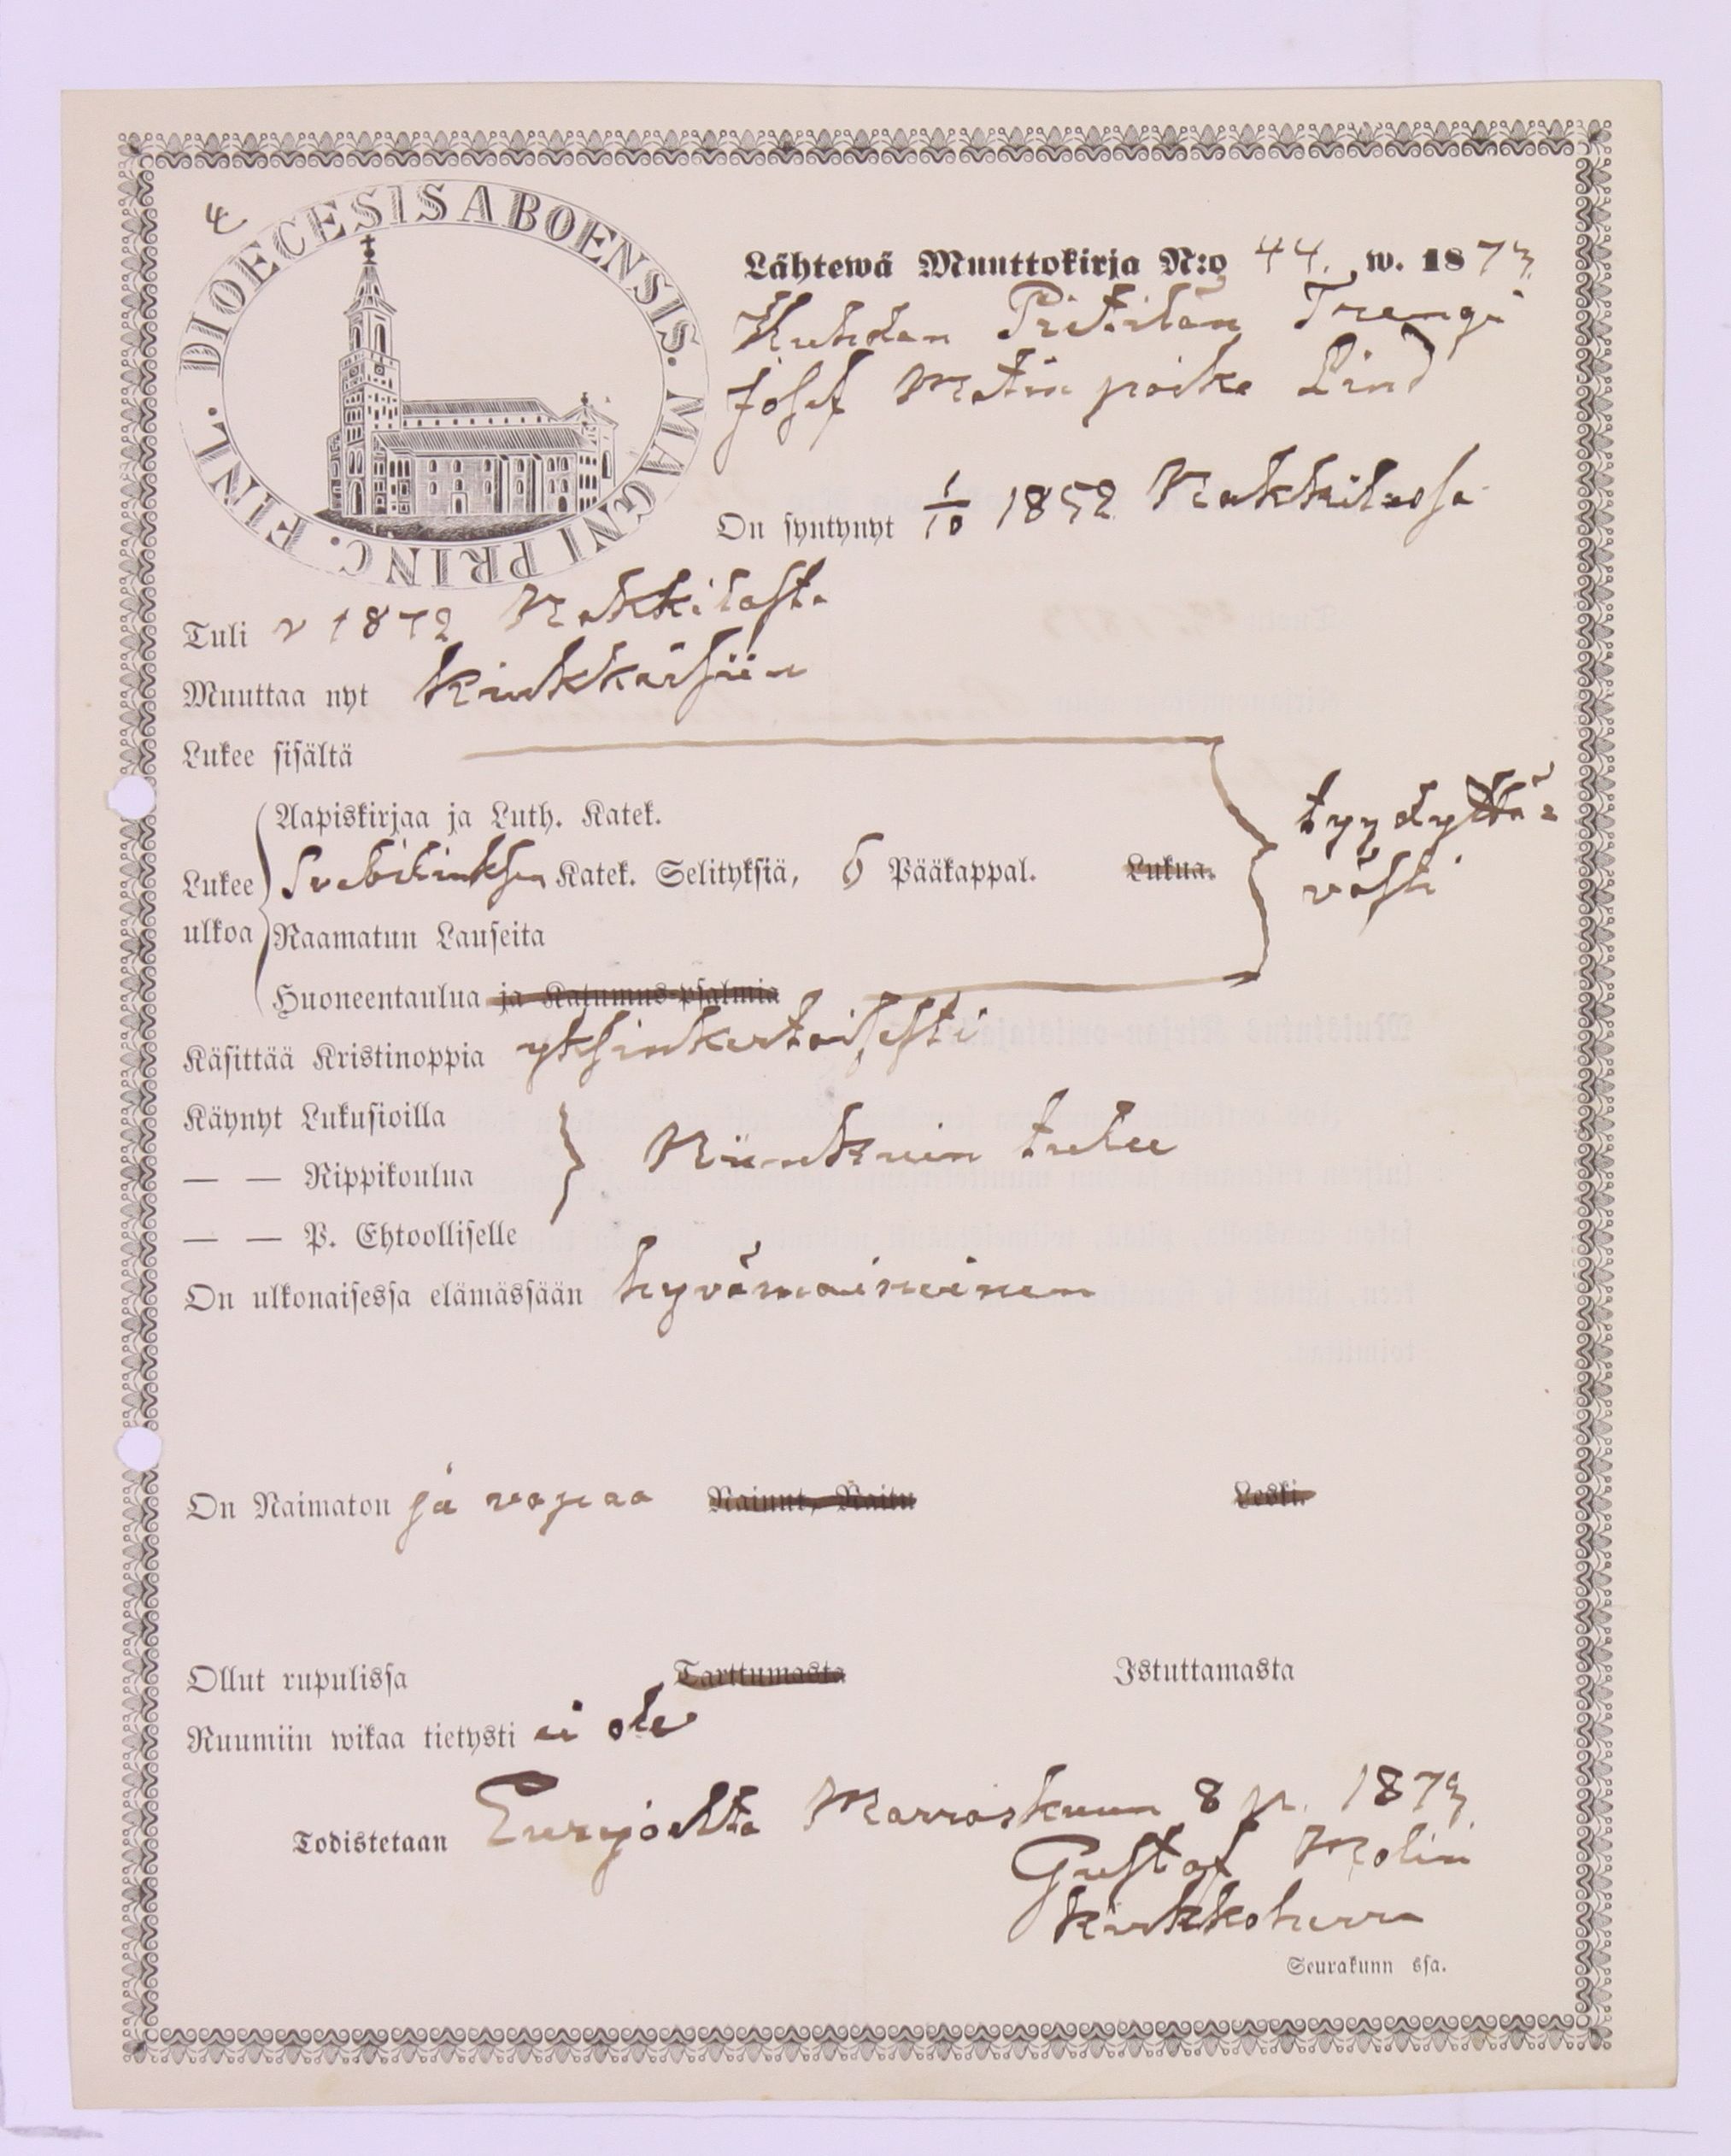 DIOECESIS ABOENSIS. MAGNI PRINC. FINL.
Lähtewä Muuttokirja N:o 44. w. 1873
Kuhdan Trengi
Josef Matin poika Lind
On syntynyt 1/10 1852 Nakkilassa
Tuli v 1872 Nakkilasta
Muuttaa nyt
Lukee sisältä
tyydyttä-
västi
Aapiskirjaa ja Luth. Katek.
Lukee ulkoa Svebiliuksen Katek. Selityksiä, 6 Pääkappal. Lukua.
Raamatun Lauseita
Huoneentaulua ja Katumus-psalmia
Käsittää Kristinoppia yksinkertaisesti
Käynyt Lukusioilla
— — Rippikoulua
Niinkuin tulee
— — P. Ehtoolliselle
On ulkonaisessa elämässään hyvämaineinen
On Naimaton ja vapaa Nainut, Naitu Leski.
Ollut rupulissa Tarttumasta Istuttamasta
Ruumiin wikaa tietysti ei ole
Todistetaan Eurajoelta Marraskuun 8 p. 1873
Gustaf Molin
kirkkoherra
Seurakunn ssa.